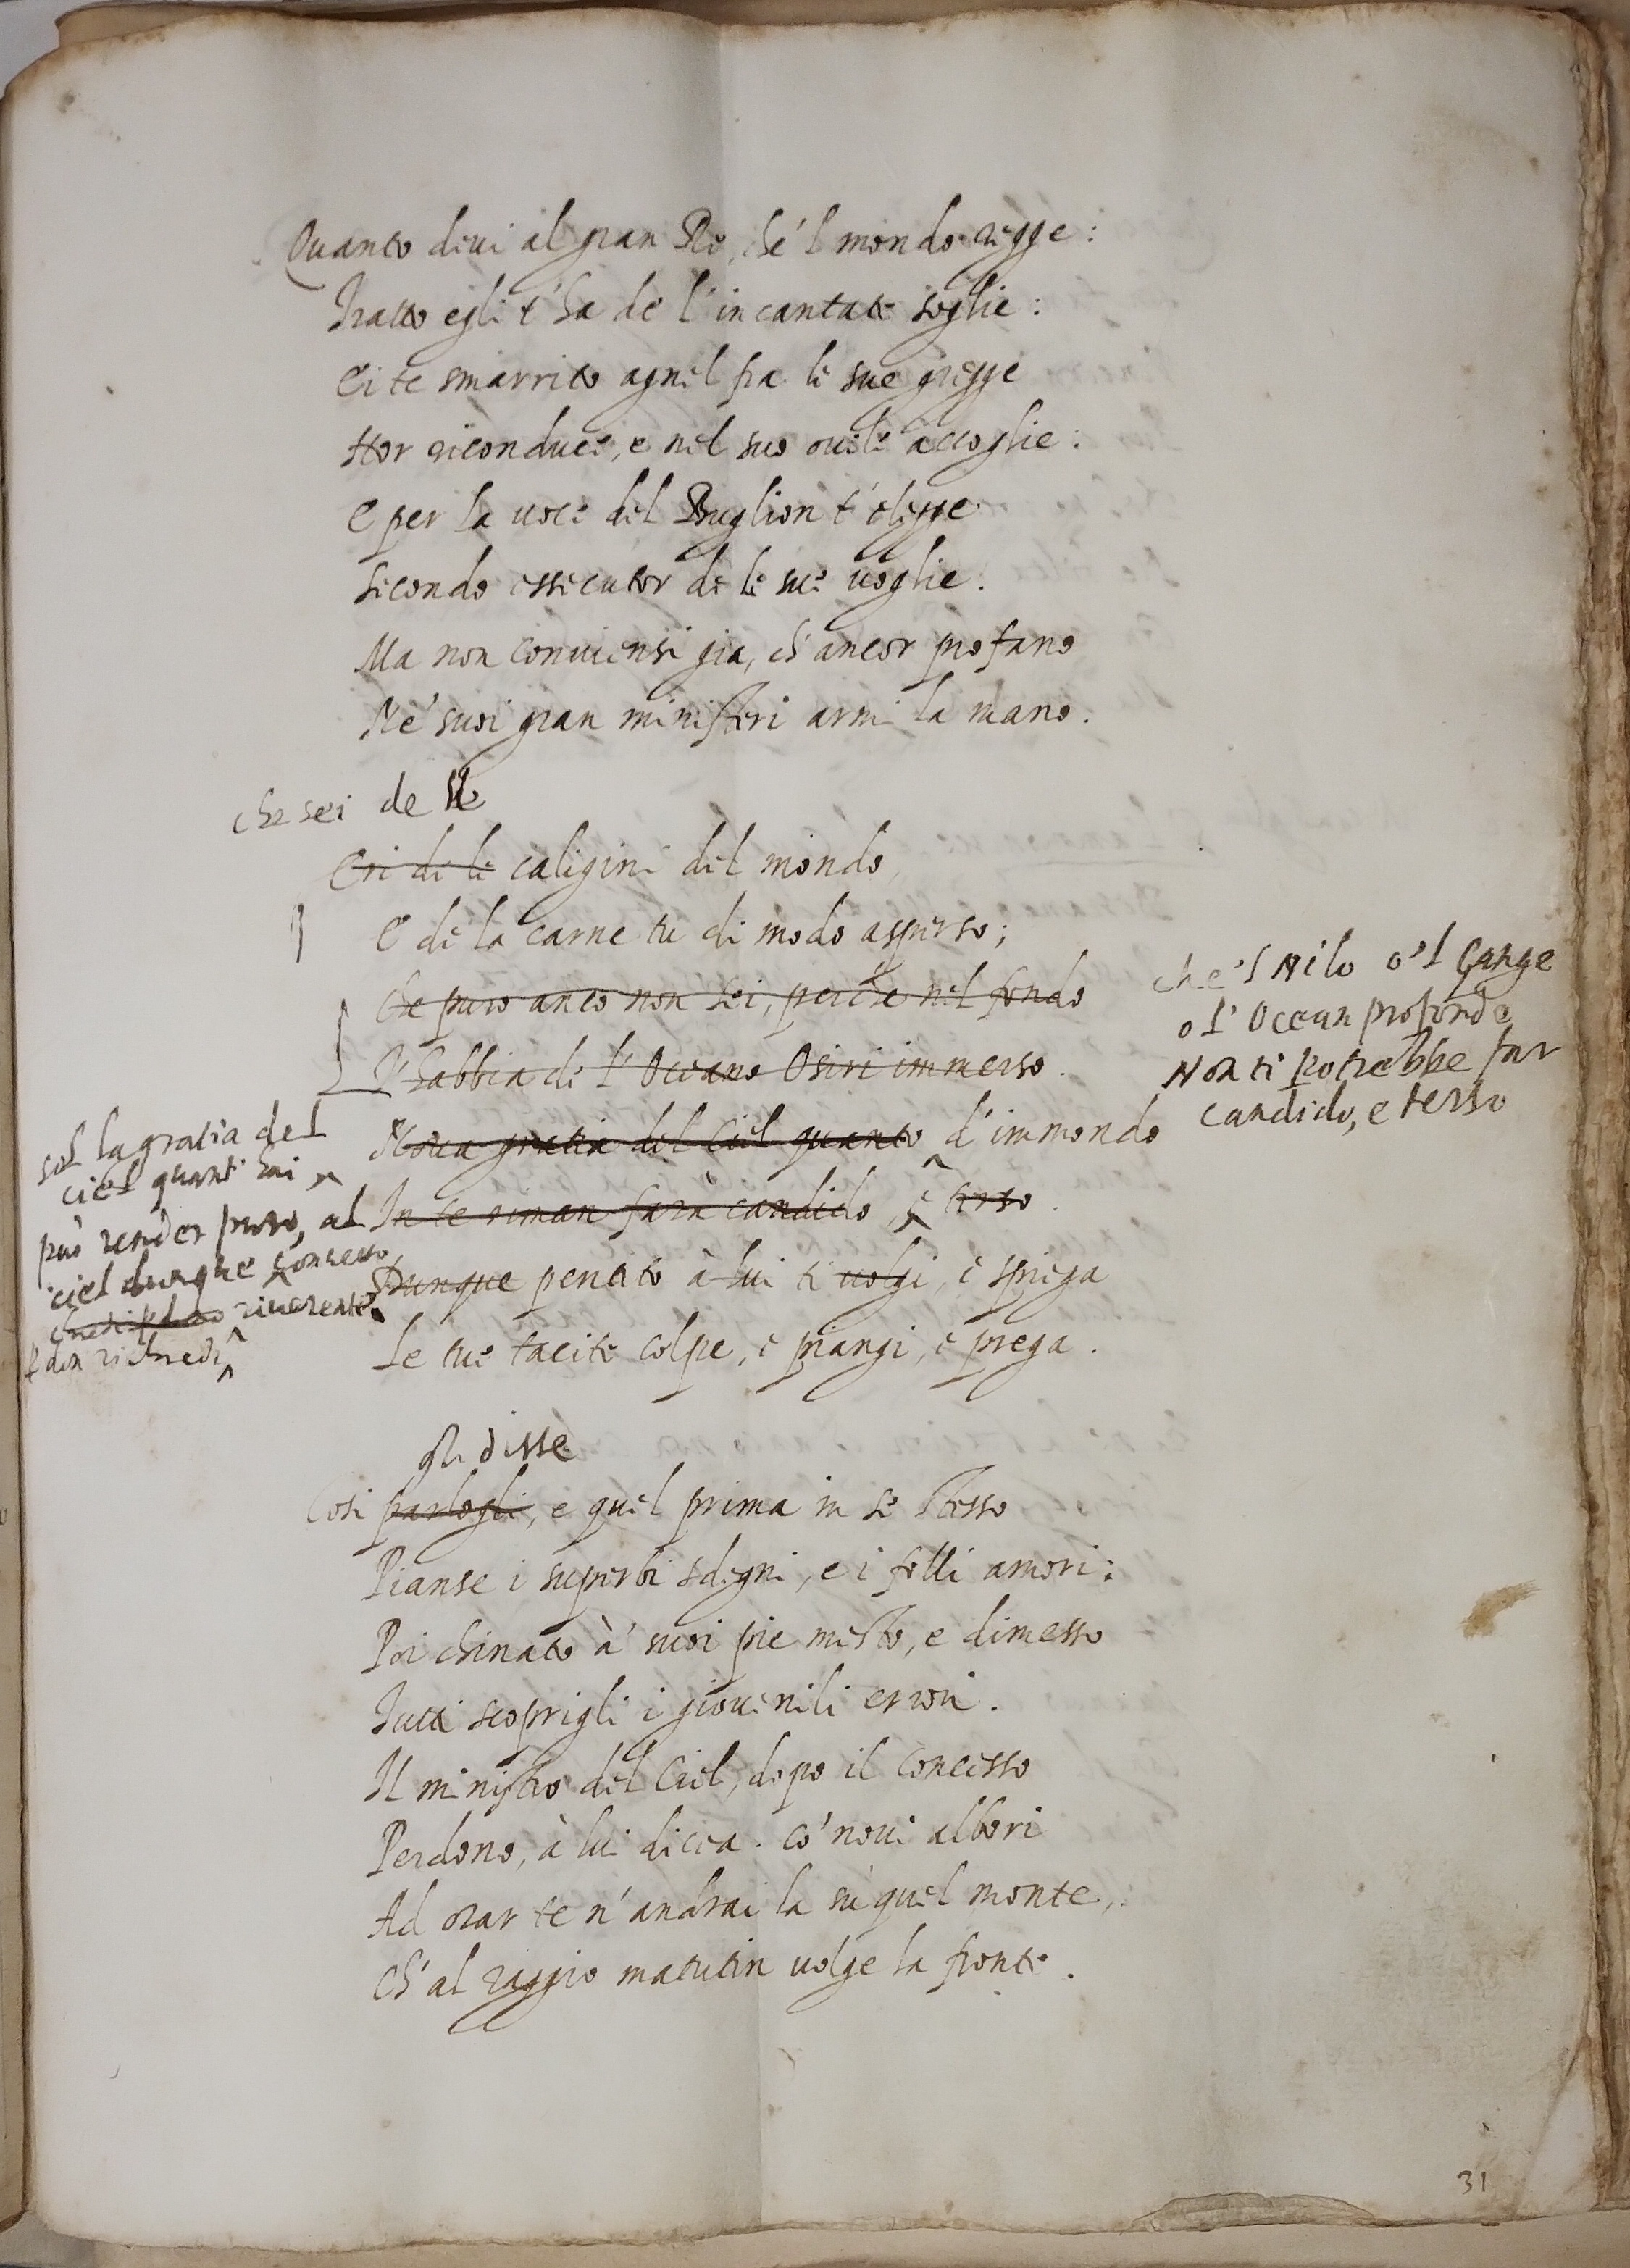 Quanto deui al gran Re, che 'l mondo regge:
Tratto egli t'ha de l'incantate soglie:
Ei te smarrito agnel fra le sue gregge
Hor riconduce, e nel suo ouile accoglie:
E per la uoce del Buglion t'elegge
Secondo essecutor de le sue uoglie.
Ma non conuiensi gia, ch'ancor profano
Ne' suoi gran ministeri armi la mano.
che sei de le
Eri de le caligini del mondo,
E de la carne tu di modo asperso;
Che puro anco non sei, perche nel fondo
T'habbia de l'Oceano Osiri immerso.
che 'l Nilo o 'l Gange
o l'Ocean profondo
Non ti potrebbe far
candido, e terso
Noua gratia del Ciel quanto d'immondo
In te riman farà candido, e terso.
Dunque pentito à lui ti uolgi, e spiega
Le tue tacite colpe, e piangi, e prega.
sol la gratia del
ciel quant'hai
può render puro, al
ciel dunque conuerso
riuerente
richiedi
gli disse
Cosi parlogli, e quel prima in se stesso
Pianse i superbi sdegni, e i folli amori:
Poi chinato à suoi pie mesto, e dimesso
Tutti scoprigli i giouenili errori.
Il ministro del Ciel, dopo il concesso
Perdono, à lui dicea. co' noui albori
Ad orar te n'andrai la sù quel monte,
Ch'al raggio matutin uolge la fronte.
31